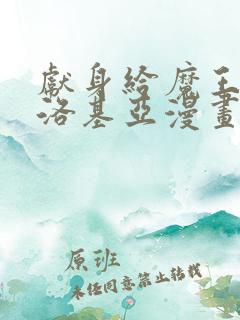 獻身給魔王伊
洛基亞漫畫
原班
未經同意禁止轉載